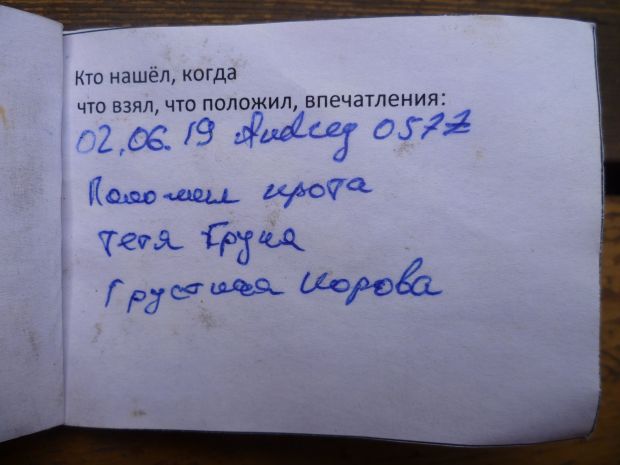 Кто нашёл, когда
что взял, что положил, впечатления:
02.06.19 Andreg 057Z
Положил крота
тетя Груня
Грустная корова